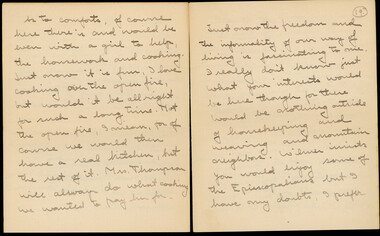 As to comforts, of course
here there is and would be
even with a girl to help,
the housework and cooking.
Just now it is fun, I love
cooking over the open fire,
but wouldn't it be all right
for such a long time. Not
the open fire, I mean, for of
course we would then
have a real kitchen, but
the rest of it. Mrs. Thompson
will always do what cooking
we wanted to pay him for.
Just now the freedom and
the informality of our way of
living is fascinating to me.
I really don't know just
what your interests would
be here though for there
would be nothing outside
of housekeeping and
weaving and mountain
neighbors.
you would enjoy some of
the Episcopalians but I
have my doubts. I prefer